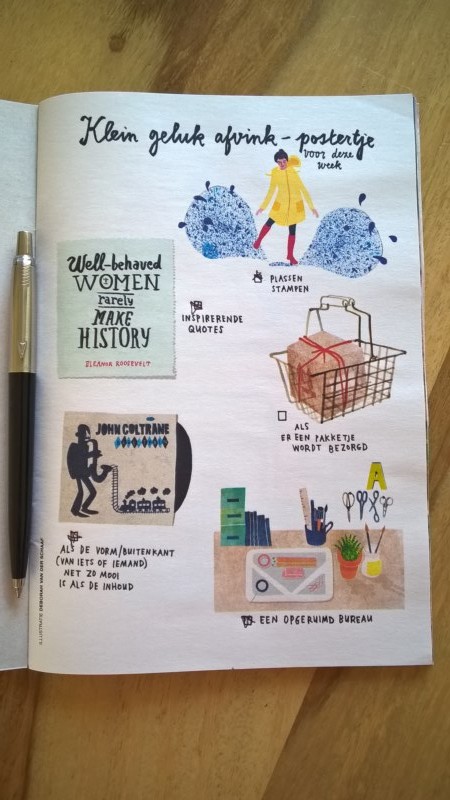 Klein geluk afvink - postertje
voor deze
week
PLASSEN
STAMPEN
Well-behaved
WOMEN
rarely
MAKE
HISTORY
ELEANOR ROOSEVELT
INSPIRERENDE
QUOTES
ALS
ER EEN PAKKETJE
WORDT BEZORGD
JOHN COLTRANE
ALS DE VORM/BUITENKANT
(VAN IETS OF IEMAND)
NET ZO MOOI
IS ALS DE INHOUD
A
EEN OPGERUIMD BUREAU
ILLUSTRATIE DEBORAH VAN DER SCHAAF